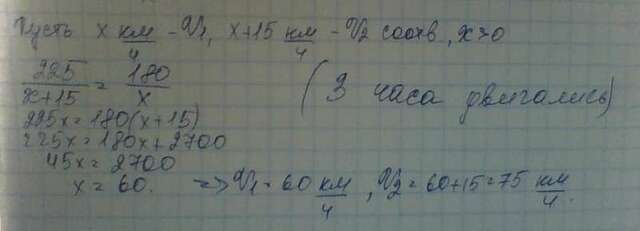 Пусть x км/ч - V1, x+15 км/ч - V2 соотв, x>0
225/(x+15) = 180/x (3 часа двигались)
225x = 180(x+15)
225x = 180x + 2700
45x = 2700
x = 60. => V1 = 60 км/ч, V2 = 60+15=75 км/ч.